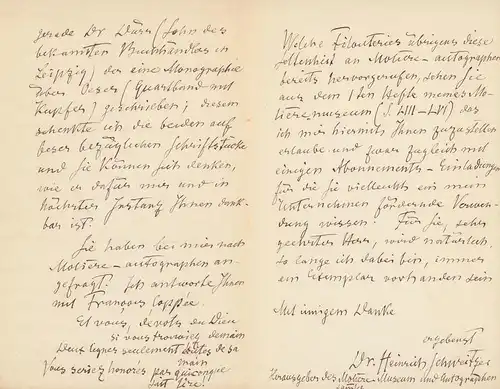 gerade Dr Dürr (Sohn des
bekannten Buchhändlers in
Leipzig) der eine Monographie
über Oeser (Quartband mit
Kupfer) geschrieben; diesem
schenkte ich die beiden auf
Oeser bezüglichen Schriftstücke
und Sie können sich denken,
wie er dafür mir und in
höchster Instanz Ihnen dank-
bar ist.
Sie haben bei mir nach
Molière-autographen an-
gefragt! Ich antworte Ihnen
mit François Coppée.
Et vous, dévots du Dieu
si vous trouviez demain
Deux lignes seulement toutes de sa
main
Vous seriez honorés par quiconque
sait lire!
Welche Filouterien übrigens diese
Seltenheit an Molière-autographen
bereits hervorgerufen, sehen Sie
aus dem 1ten Hefte meines Mo-
lièremuseum (S. LIII-LVI) das
ich mir hiermit Ihnen zuzustellen
erlaube und zwar zugleich mit
einigen Abonnements-Einladungen
für die Sie vielleicht ein mein
Unternehmen fördernde Verwen-
dung wissen! Für Sie, sehr
geehrter Herr, wird natürlich,
so lange ich dabei bin, immer
ein Exemplar vorhanden sein
Mit innigem Danke
ergebenst
Dr. Heinrich Schweitzer
Herausgeber des Molière-Museum und Autographen